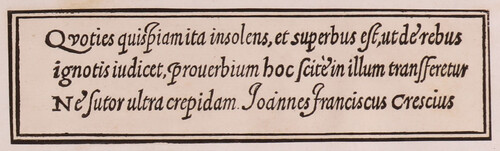 Qvoties quispiam ita insolens, et superbus est, ut de rebus
ignotis iudicet, prouerbium hoc scitè in illum transferetur
Ne sutor ultra crepidam. Joannes Franciscus Crescius